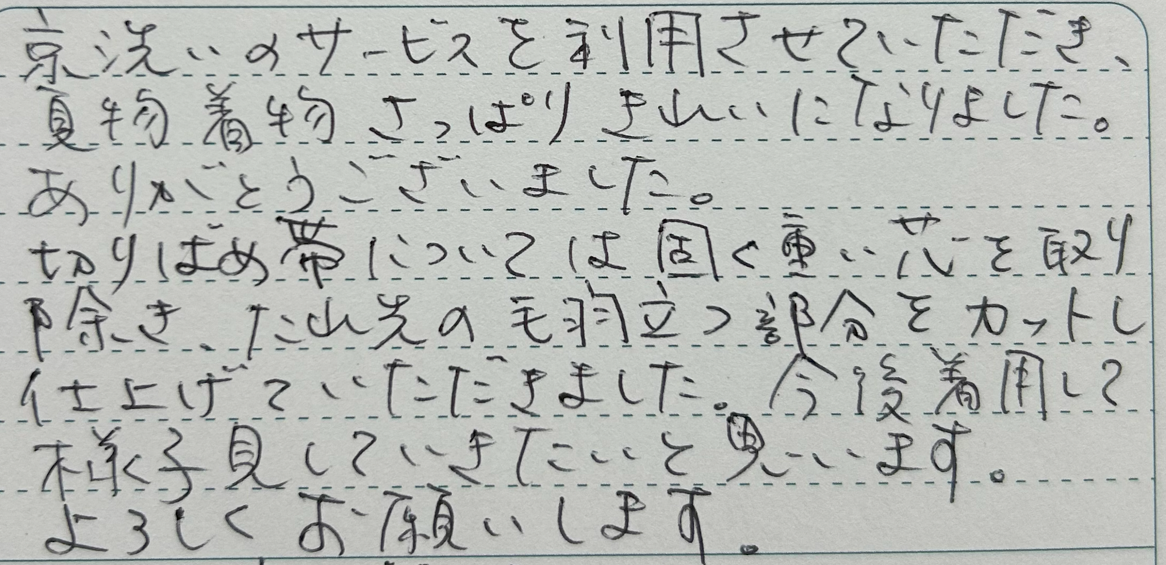 京洗いのサービスを利用させていただき、
夏物着物さっぱりきれいになりました。
ありがとうございました。
切りばめ帯については固く重い芯を取り
除き、たれ先の毛羽立つ部分をカットし
仕上げていただきました。今後着用して
様子見していきたいと思います。
よろしくお願いします。